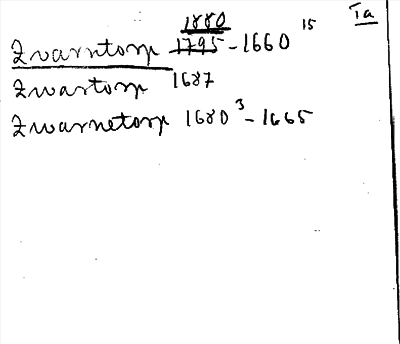 Ia
1880
Zwarntorp 1795 - 1660 15
Zwartorp 1687
Zwarnetorp 1680 3 - 1665